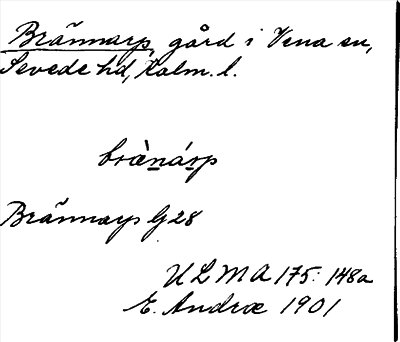 Brännarp, gård i Vena sn,
Sevede hd, Kalm. l.
bræ̀ṉáṟp
Brännarp G 28
ULMA 175:148a
E. Andræ 1901